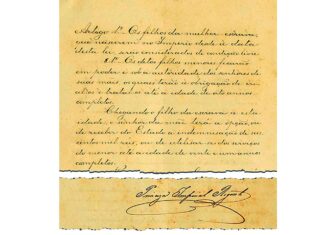 Artigo 1º. Os filhos da mulher escrava,
que nascerem no Imperio desde a data
desta lei, serão considerados de condição livre.
§ 1º. Os ditos filhos menores ficarão
em poder e sob a autoridade dos senhores de
suas mães, os quaes terão a obrigação de
creal-os e tratal-os até a idade de oito annos
completos.
Chegando o filho da escrava a esta
idade, o senhor da mãe terá a opção, ou
de receber do Estado a indemnização de seis
centos mil réis, ou de utilisar-se dos serviços
do menor até a idade de vinte e um annos
completos.
Princeza Imperial Regente